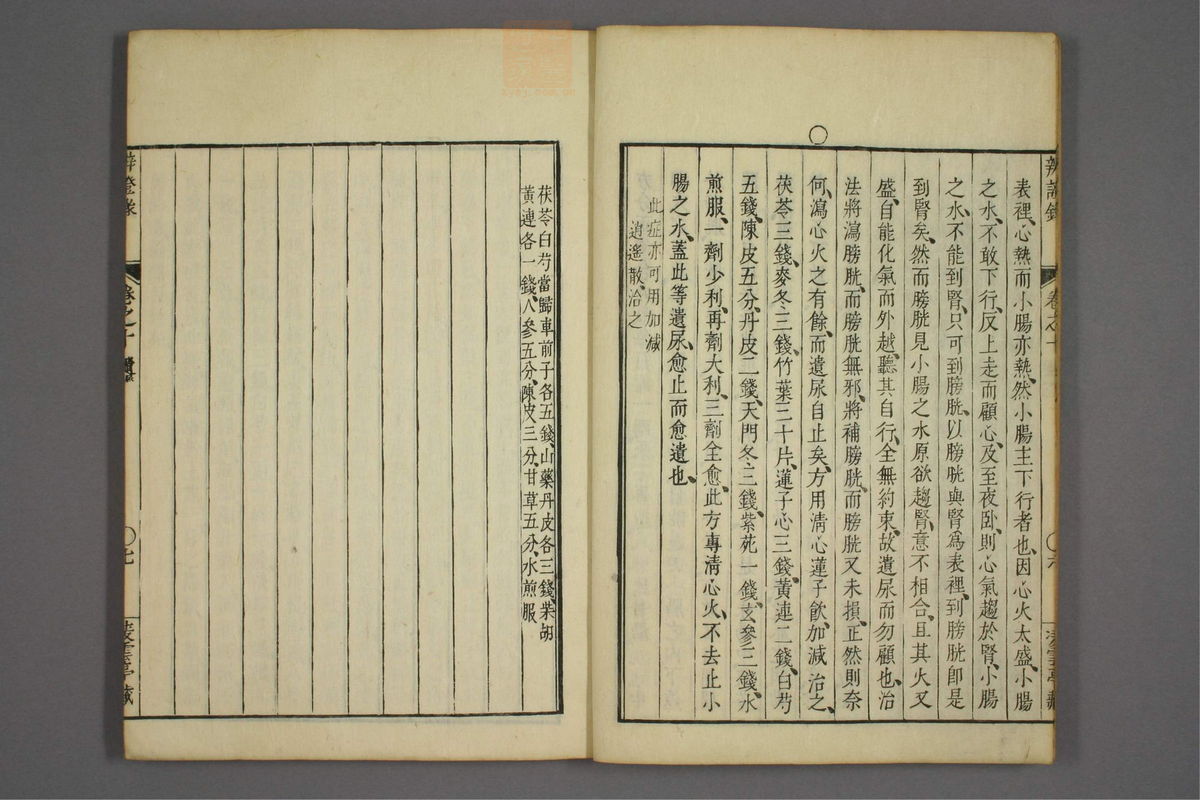 表裡、心熱而小腸亦熱、然小腸主下行者也、因心火太盛、小腸
之水、不敢下行、反上走而顧心、及至夜卧、則心氣趨於腎、小腸
之水、不能到腎、只可到膀胱、以膀胱與腎為表裡、到膀胱卽是
到腎矣、然而膀胱見小腸之水原欲趨腎、意不相合、且其火又
盛、自能化氣而外越、聽其自行、全無約束、故遺尿而勿顧也、治
法將瀉膀胱、而膀胱無邪、將補膀胱、而膀胱又未損、正然則奈
何、瀉心火之有餘、而遺尿自止矣、方用清心蓮子飲、加減治之、
茯苓三錢、麥冬三錢、竹葉三十片、蓮子心三錢、黃連二錢、白芍
五錢、陳皮五分、丹皮二錢、天門冬三錢、紫苑一錢、玄參三錢、水
煎服、一劑少利、再劑大利、三劑全愈、此方專清心火、不去止小
腸之水、蓋此等遺尿、愈止而愈遺也、
此症亦可用加減
逍遙散、治之
辨證錄
卷之十
〇六
茯苓白芍當歸車前子各五錢、山藥丹皮各三錢、柴胡
黃連各一錢、人參五分、陳皮三分、甘草五分、水煎服
卷之十
〇七